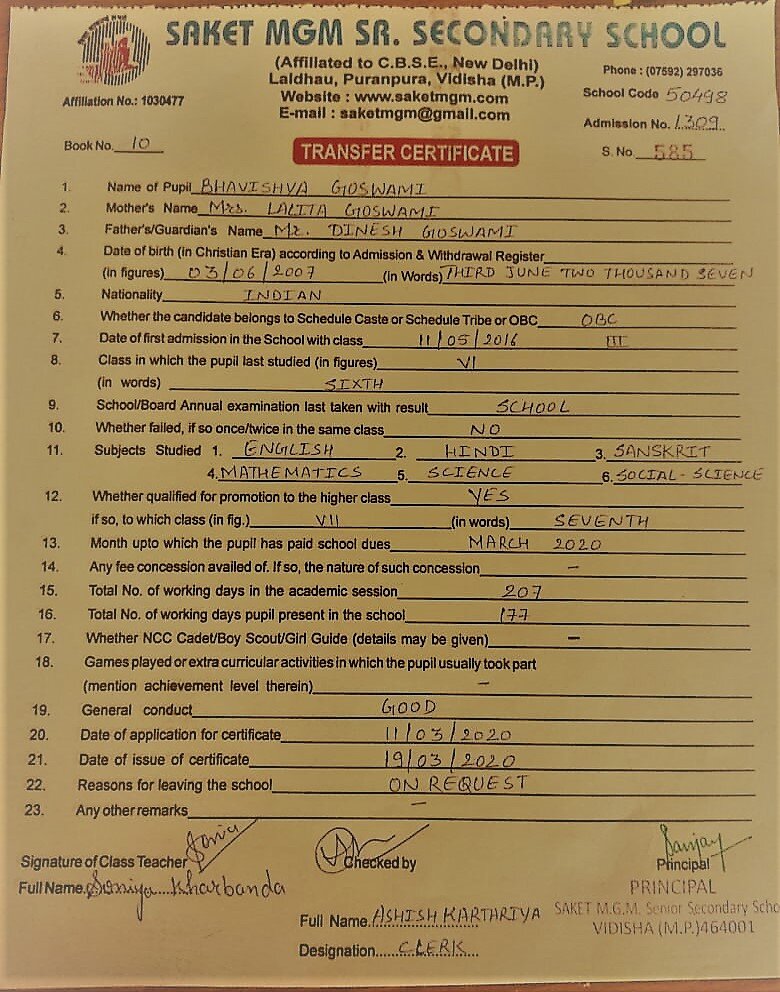 SAKET MGM SR. SECONDARY SCHOOL
(Affiliated to C.B.S.E., New Delhi)
Laldhau, Puranpura, Vidisha (M.P.)
Phone : (07592) 297036
Affiliation No.: 1030477
Website : www.saketmgm.com
School Code 50498
E-mail : saketmgm@gmail.com
Admission No. 1309
Book No. 10
TRANSFER CERTIFICATE
S. No. 585
1. Name of Pupil BHAVISHVA GOSWAMI
2. Mother's Name Mrs. LALITA GOSWAMI
3. Father's/Guardian's Name Mr. DINESH GOSWAMI
4. Date of birth (in Christian Era) according to Admission & Withdrawal Register
(in figures) 03/06/2007 (in Words) THIRD JUNE TWO THOUSAND SEVEN
5. Nationality INDIAN
6. Whether the candidate belongs to Schedule Caste or Schedule Tribe or OBC OBC
7. Date of first admission in the School with class 11/05/2016 III
8. Class in which the pupil last studied (in figures) VI
(in words) SIXTH
9. School/Board Annual examination last taken with result SCHOOL
10. Whether failed, if so once/twice in the same class NO
11. Subjects Studied 1. ENGLISH 2. HINDI 3. SANSKRIT
4. MATHEMATICS 5. SCIENCE 6. SOCIAL-SCIENCE
12. Whether qualified for promotion to the higher class YES
if so, to which class (in fig.) VII (in words) SEVENTH
13. Month upto which the pupil has paid school dues MARCH 2020
14. Any fee concession availed of. If so, the nature of such concession -
15. Total No. of working days in the academic session 207
16. Total No. of working days pupil present in the school 177
17. Whether NCC Cadet/Boy Scout/Girl Guide (details may be given) -
18. Games played or extra curricular activities in which the pupil usually took part
(mention achievement level therein) -
19. General conduct GOOD
20. Date of application for certificate 11/03/2020
21. Date of issue of certificate 19/03/2020
22. Reasons for leaving the school ON REQUEST
23. Any other remarks -
Signature of Class Teacher Soniya
Checked by
Sanjay
Principal
Full Name. Soniya Kharbanda
PRINCIPAL
SAKET M.G.M. Senior Secondary Scho
VIDISHA (M.P.) 464001
Full Name. ASHISH KARTARIYA
Designation.....CLERK...